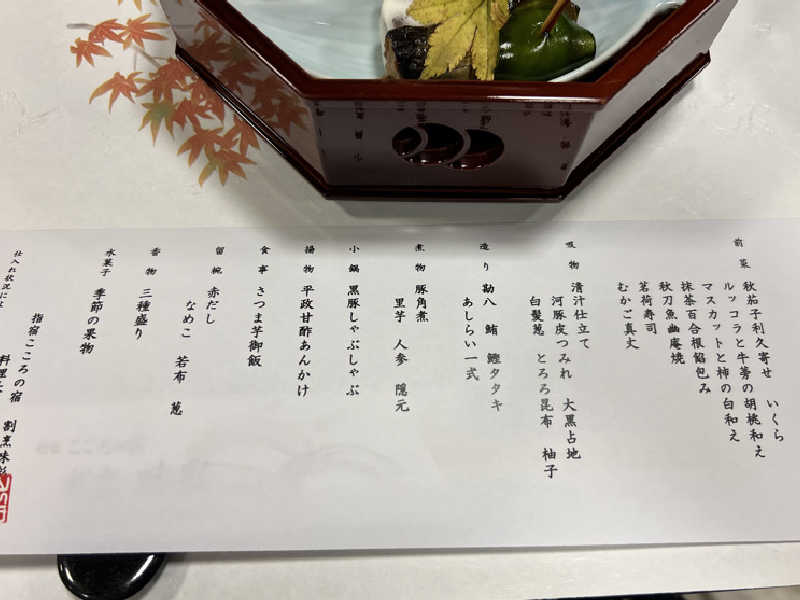 前菜 秋茄子利久寄せ いくら
ルッコラと牛蒡の胡桃和え
マスカットと柿の白和え
抹茶百合根餡包み
秋刀魚幽庵焼
茗荷寿司
むかご真丈
吸物 清汁仕立て
河豚皮つみれ 大黒占地
白髪葱 とろろ昆布 柚子
造り 勘八 鮪 鰹タタキ
あしらい一式
煮物 豚角煮
里芋 人参 隠元
小鍋 黒豚しゃぶしゃぶ
揚物 平政甘酢あんかけ
食事 さつま芋御飯
留椀 赤だし
なめこ 若布 葱
香物 三種盛り
水菓子 季節の果物
指宿こころの宿
料理長 割烹味
仕入れ状況に